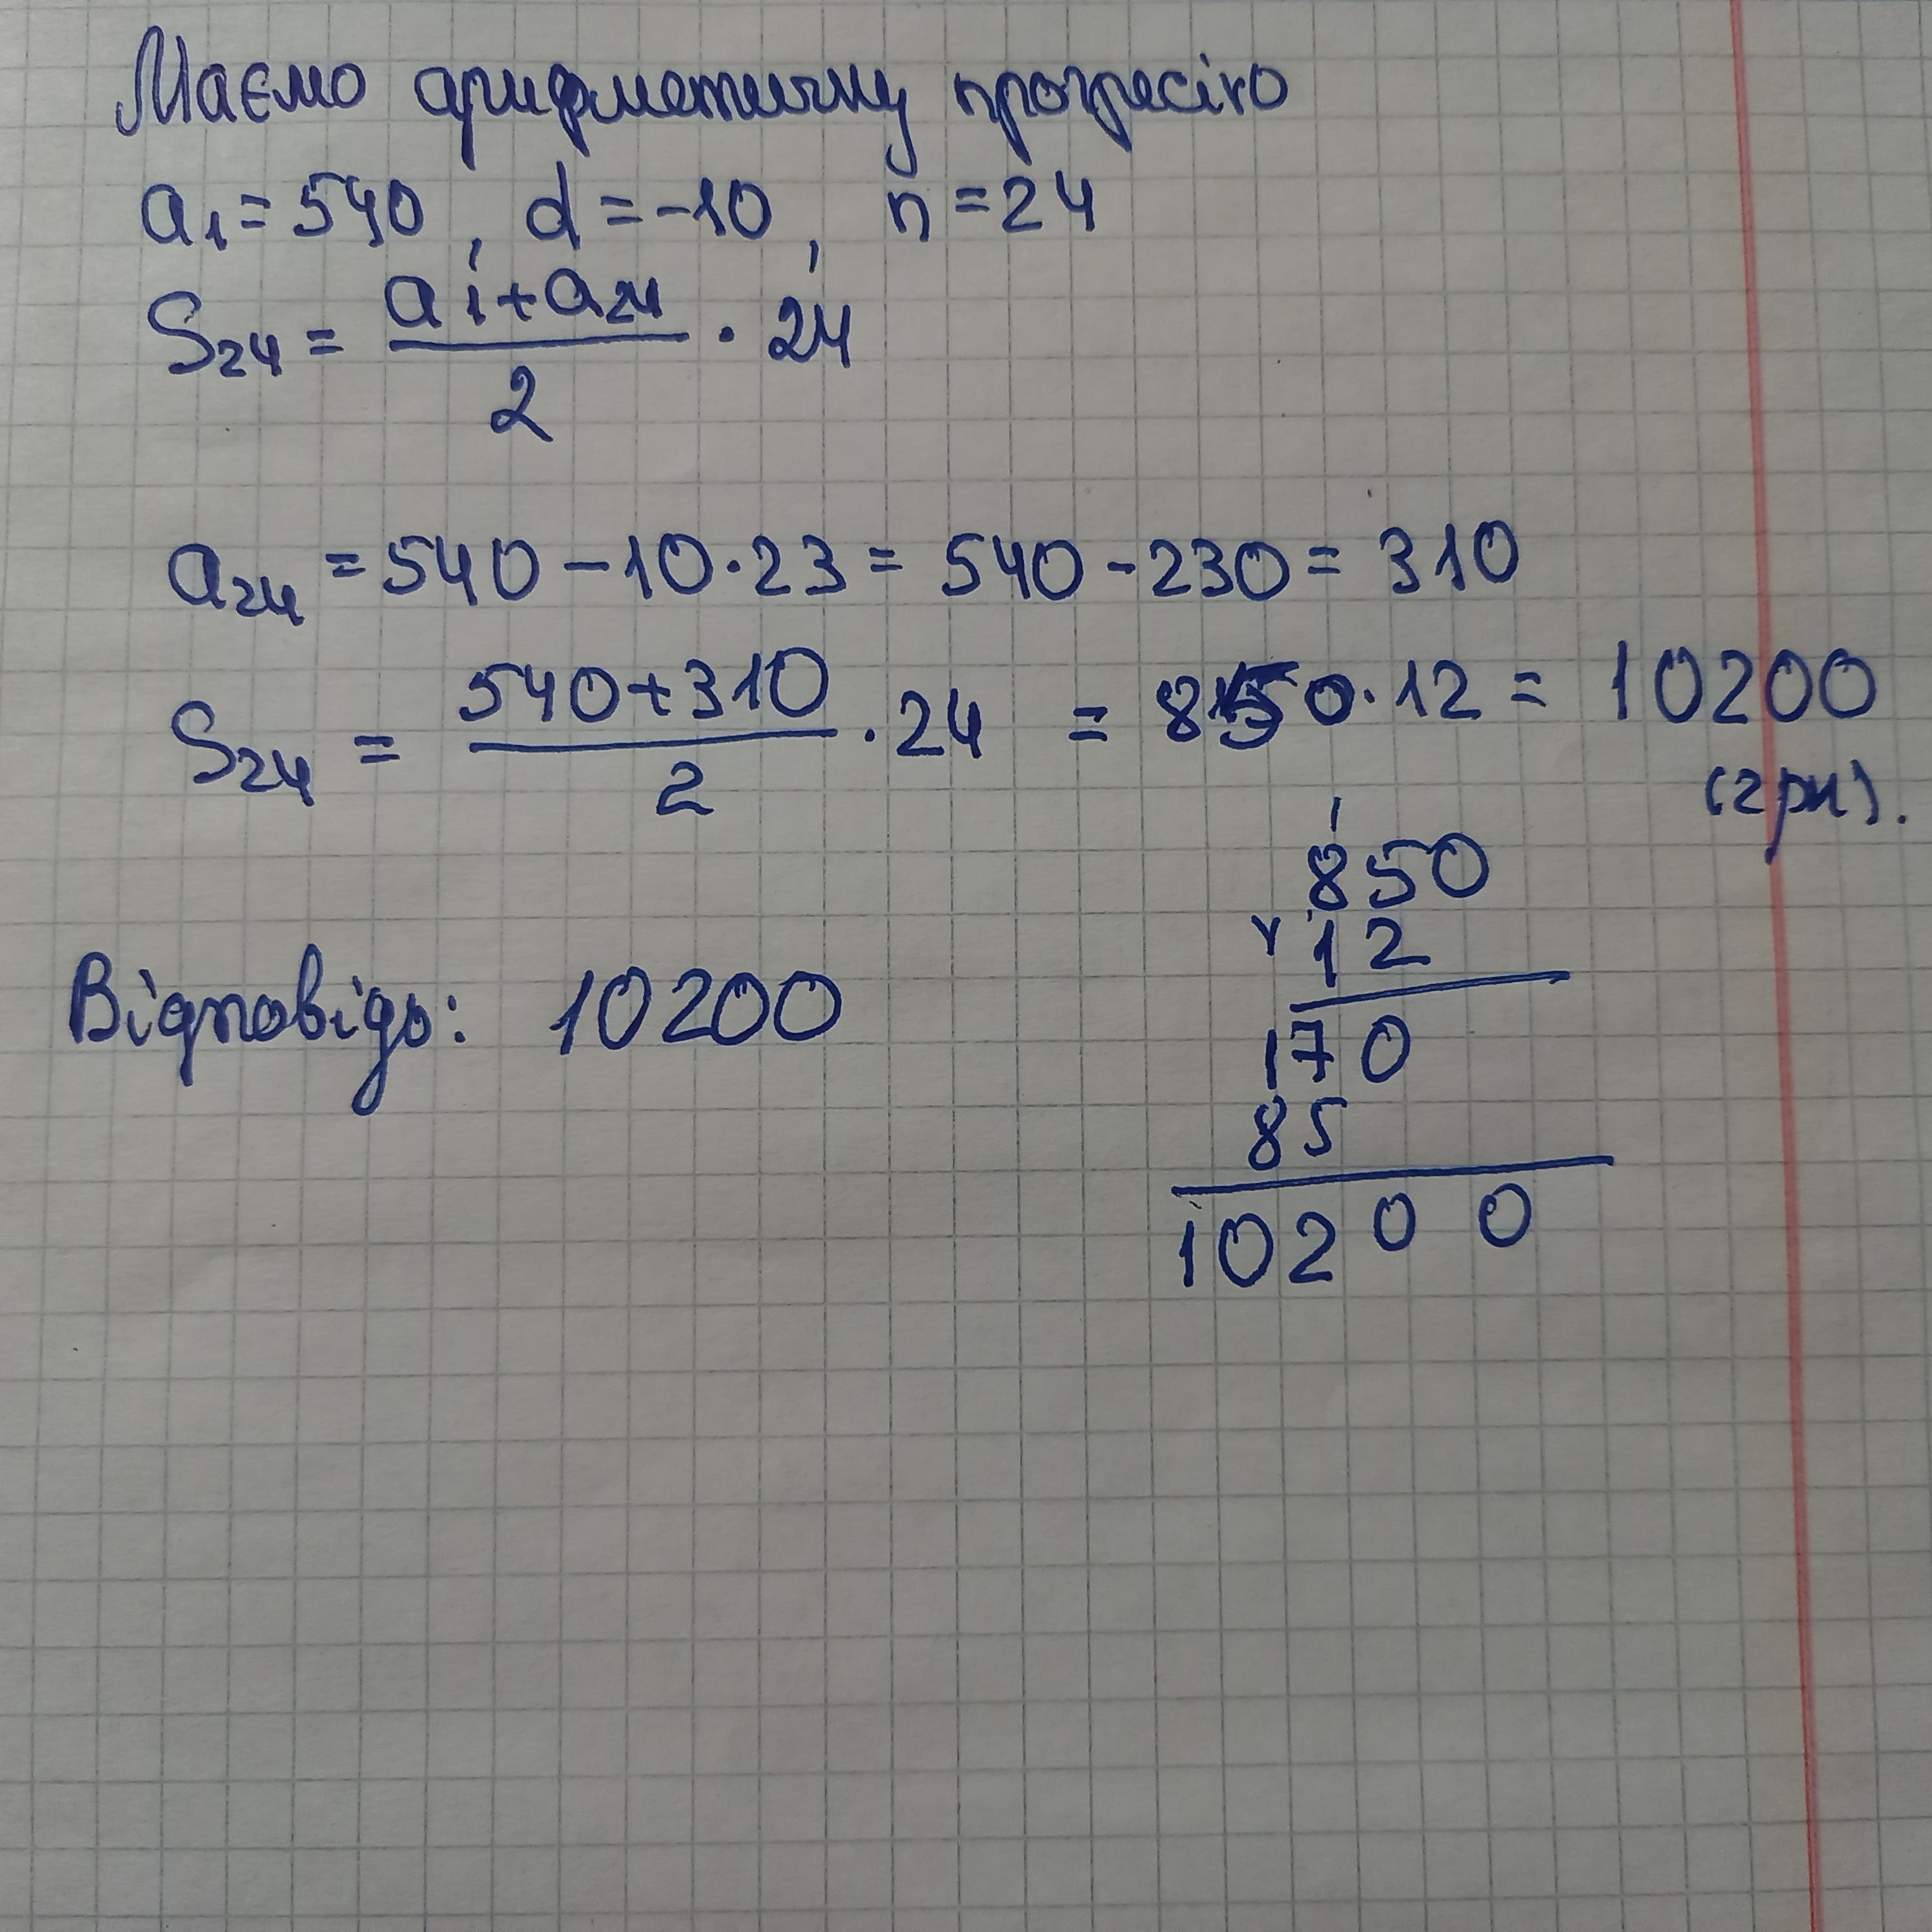 Маємо арифметичну прогресію
a₁ = 540, d = -10, n = 24
S₂₄ = (a₁ + a₂₄)/2 · 24
a₂₄ = 540 - 10 · 23 = 540 - 230 = 310
S₂₄ = (540 + 310)/2 · 24 = 850 · 12 = 10200
(грн).
1
850
× 12
170
85
10200
Відповідь: 10200